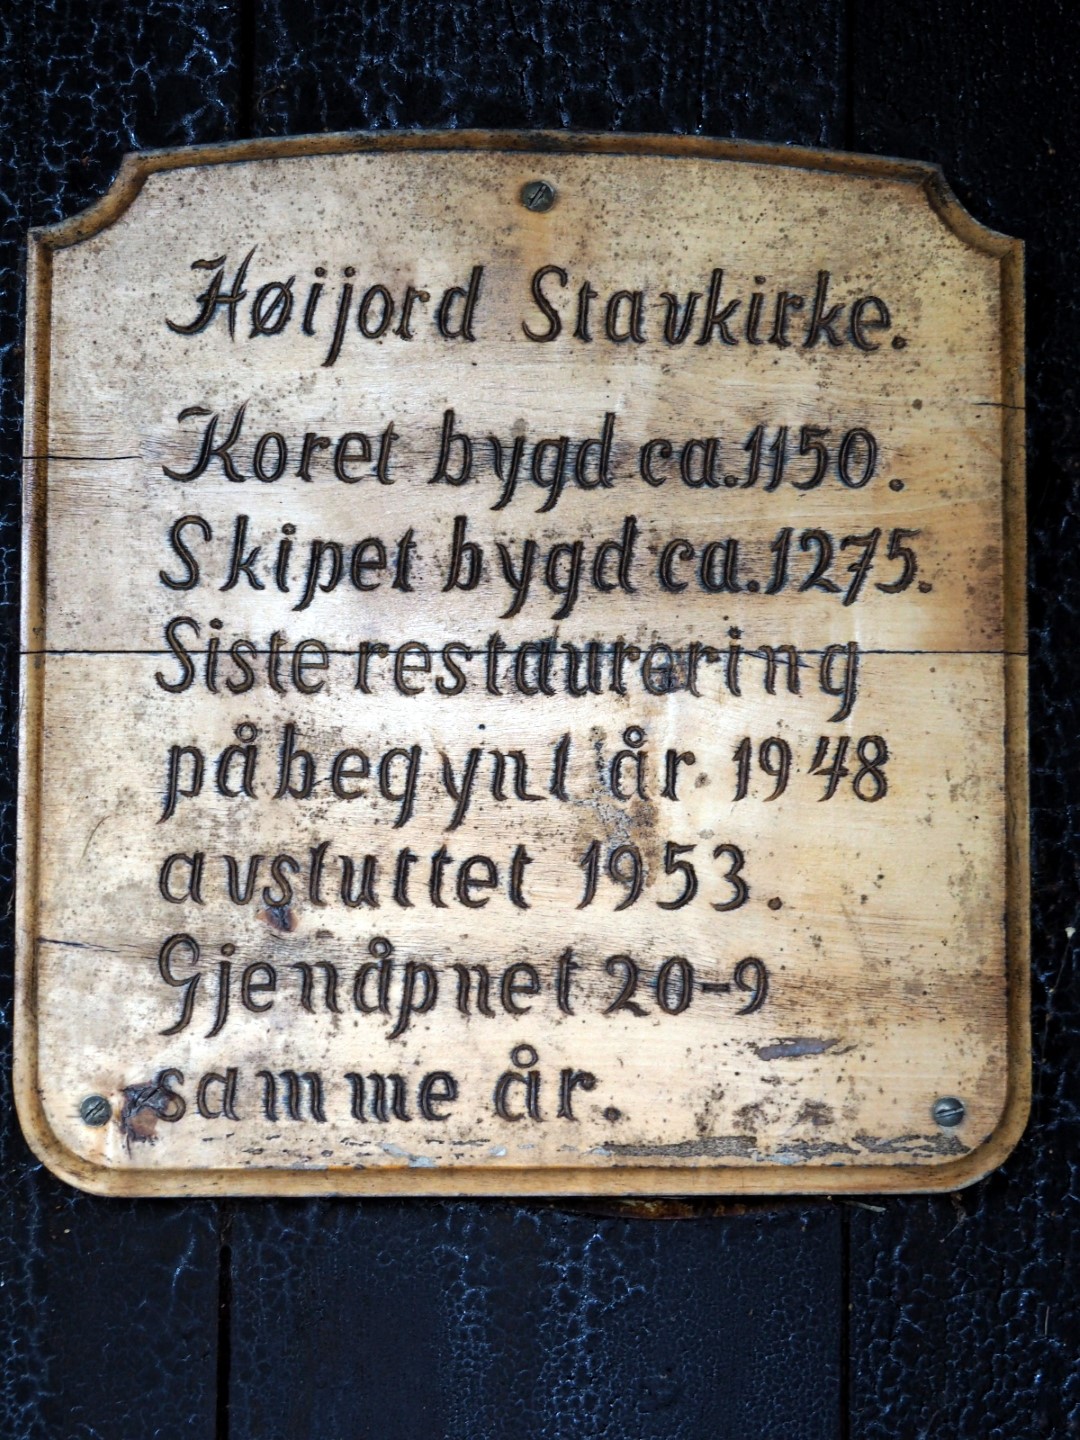 Høijord Stavkirke.
Koret bygd ca. 1150.
Skipet bygd ca. 1275.
Siste restaurering
påbegynt år 1948
avsluttet 1953.
Gjenåpnet 20-9
samme år.